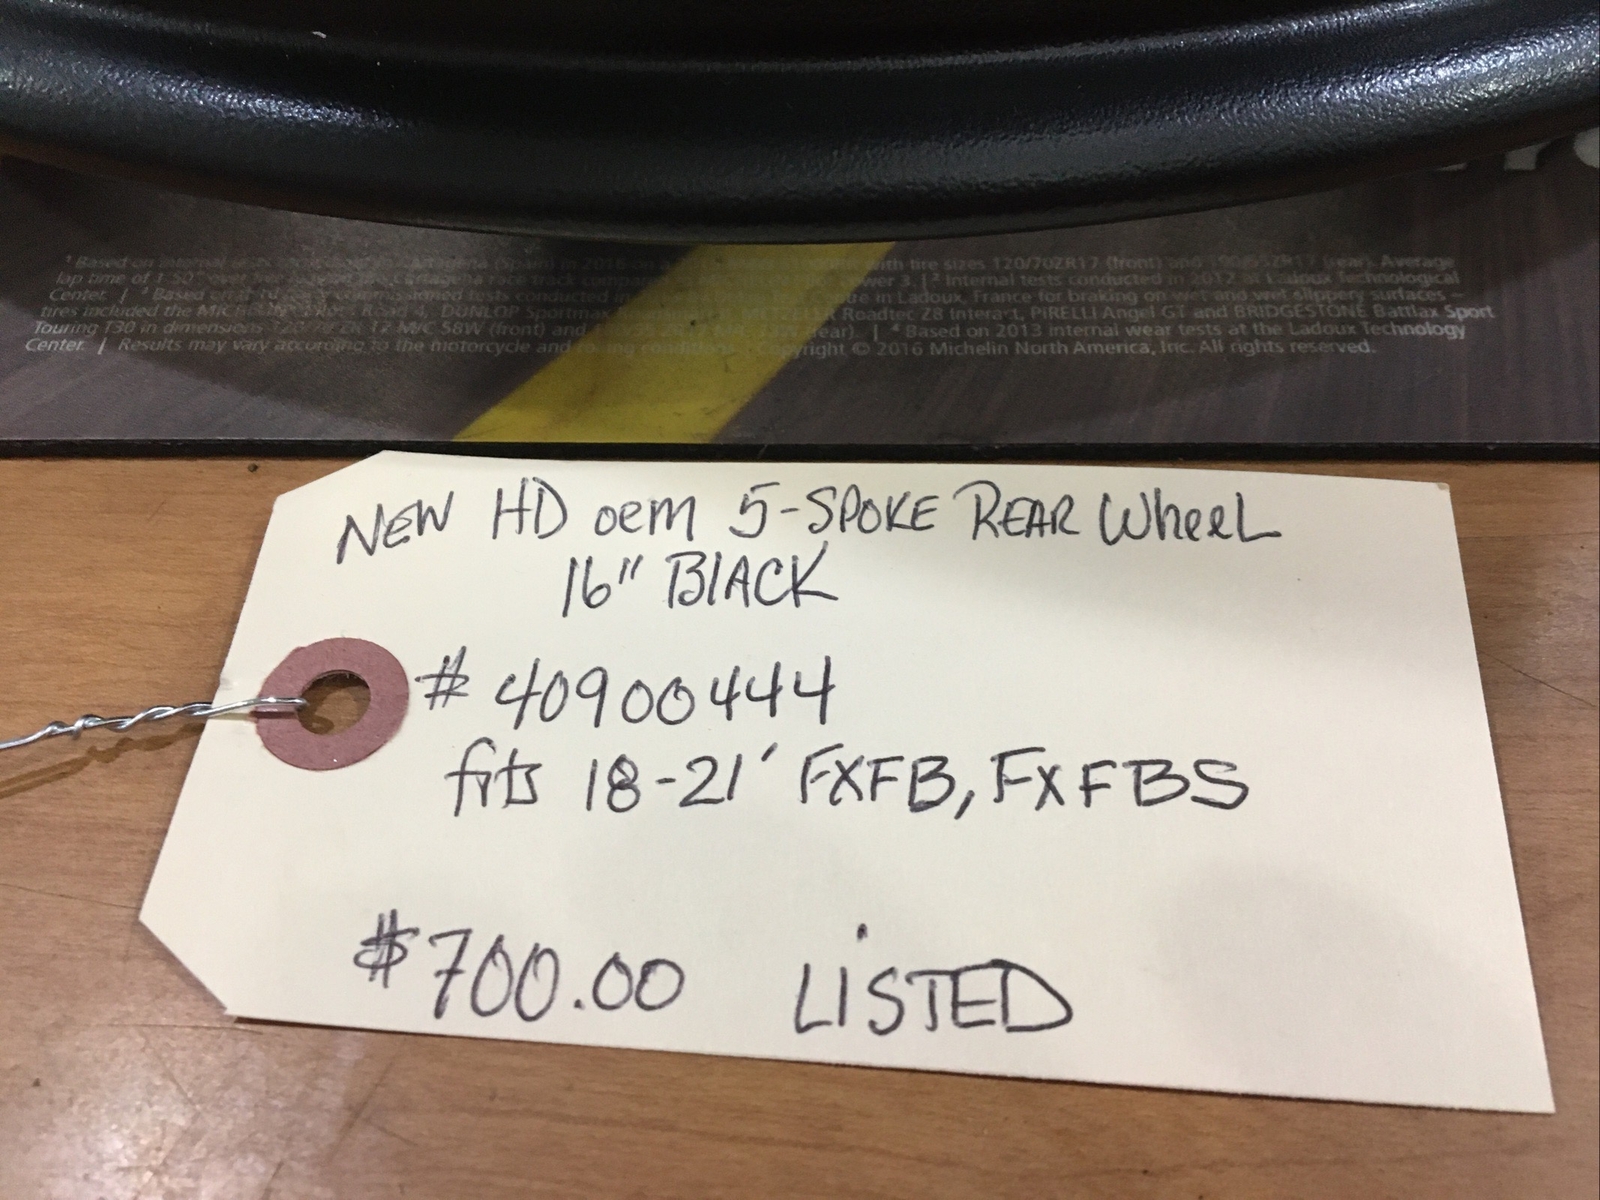 ¹ Based on internal tests in 2016 on a with tire sizes 120/70ZR17 (front) and 190/55ZR17 (rear). Average
lap time of 1'50" over race track 3. | ² Internal tests conducted in 2012 at Ladoux Technological
Center. | ³ Based on commissioned tests conducted in Ladoux, France for braking on wet and wet slippery surfaces –
tires included the Road 4, DUNLOP Sportmax Roadtec Z8 Interact, PIRELLI Angel GT and BRIDGESTONE Battlax Sport
Touring T30 in dimensions M/C 58W (front) and (rear). | ⁴ Based on 2013 internal wear tests at the Ladoux Technology
Center. | Results may vary according to the motorcycle and conditions. Copyright © 2016 Michelin North America, Inc. All rights reserved.
NEW HD oem 5-SPOKE REAR WheeL
16" BLACK
# 40900444
fits 18-21' FXFB, FXFBS
$700.00 LiSTED